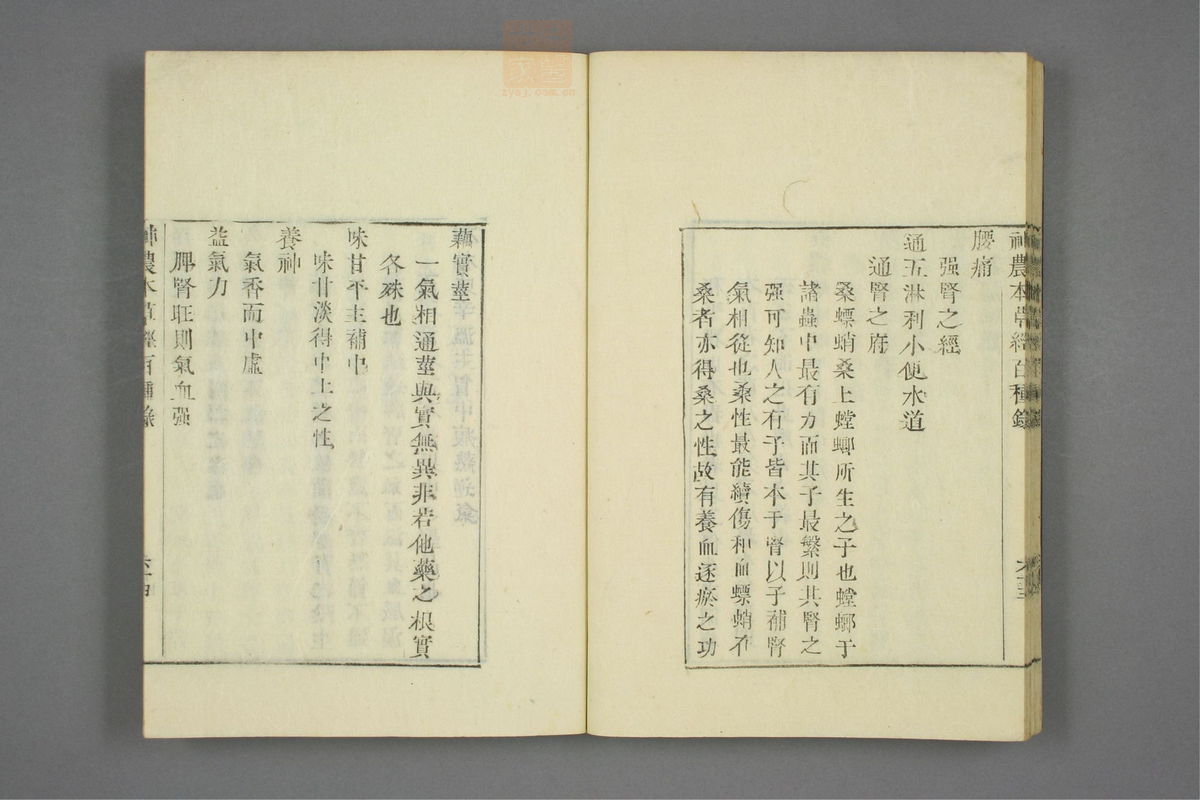 神農本草經百種錄
腰痛
强腎之經
通五淋利小便水道
通腎之府
桑螵蛸桑上螳螂所生之子也螳螂于
諸蟲中最有力而其子最繁則其腎之
强可知人之有子皆本于腎以子補腎
氣相從也桑性最能續傷和血螵蛸在
桑者亦得桑之性故有養血逐瘀之功
藕實莖
一氣相通莖與實無異非若他藥之根實
各殊也
味甘平主補中
味甘淡得中土之性
養神
氣香而中虛
益氣力
脾腎旺則氣血强
神農本草經百種錄
zyoj.com.cn